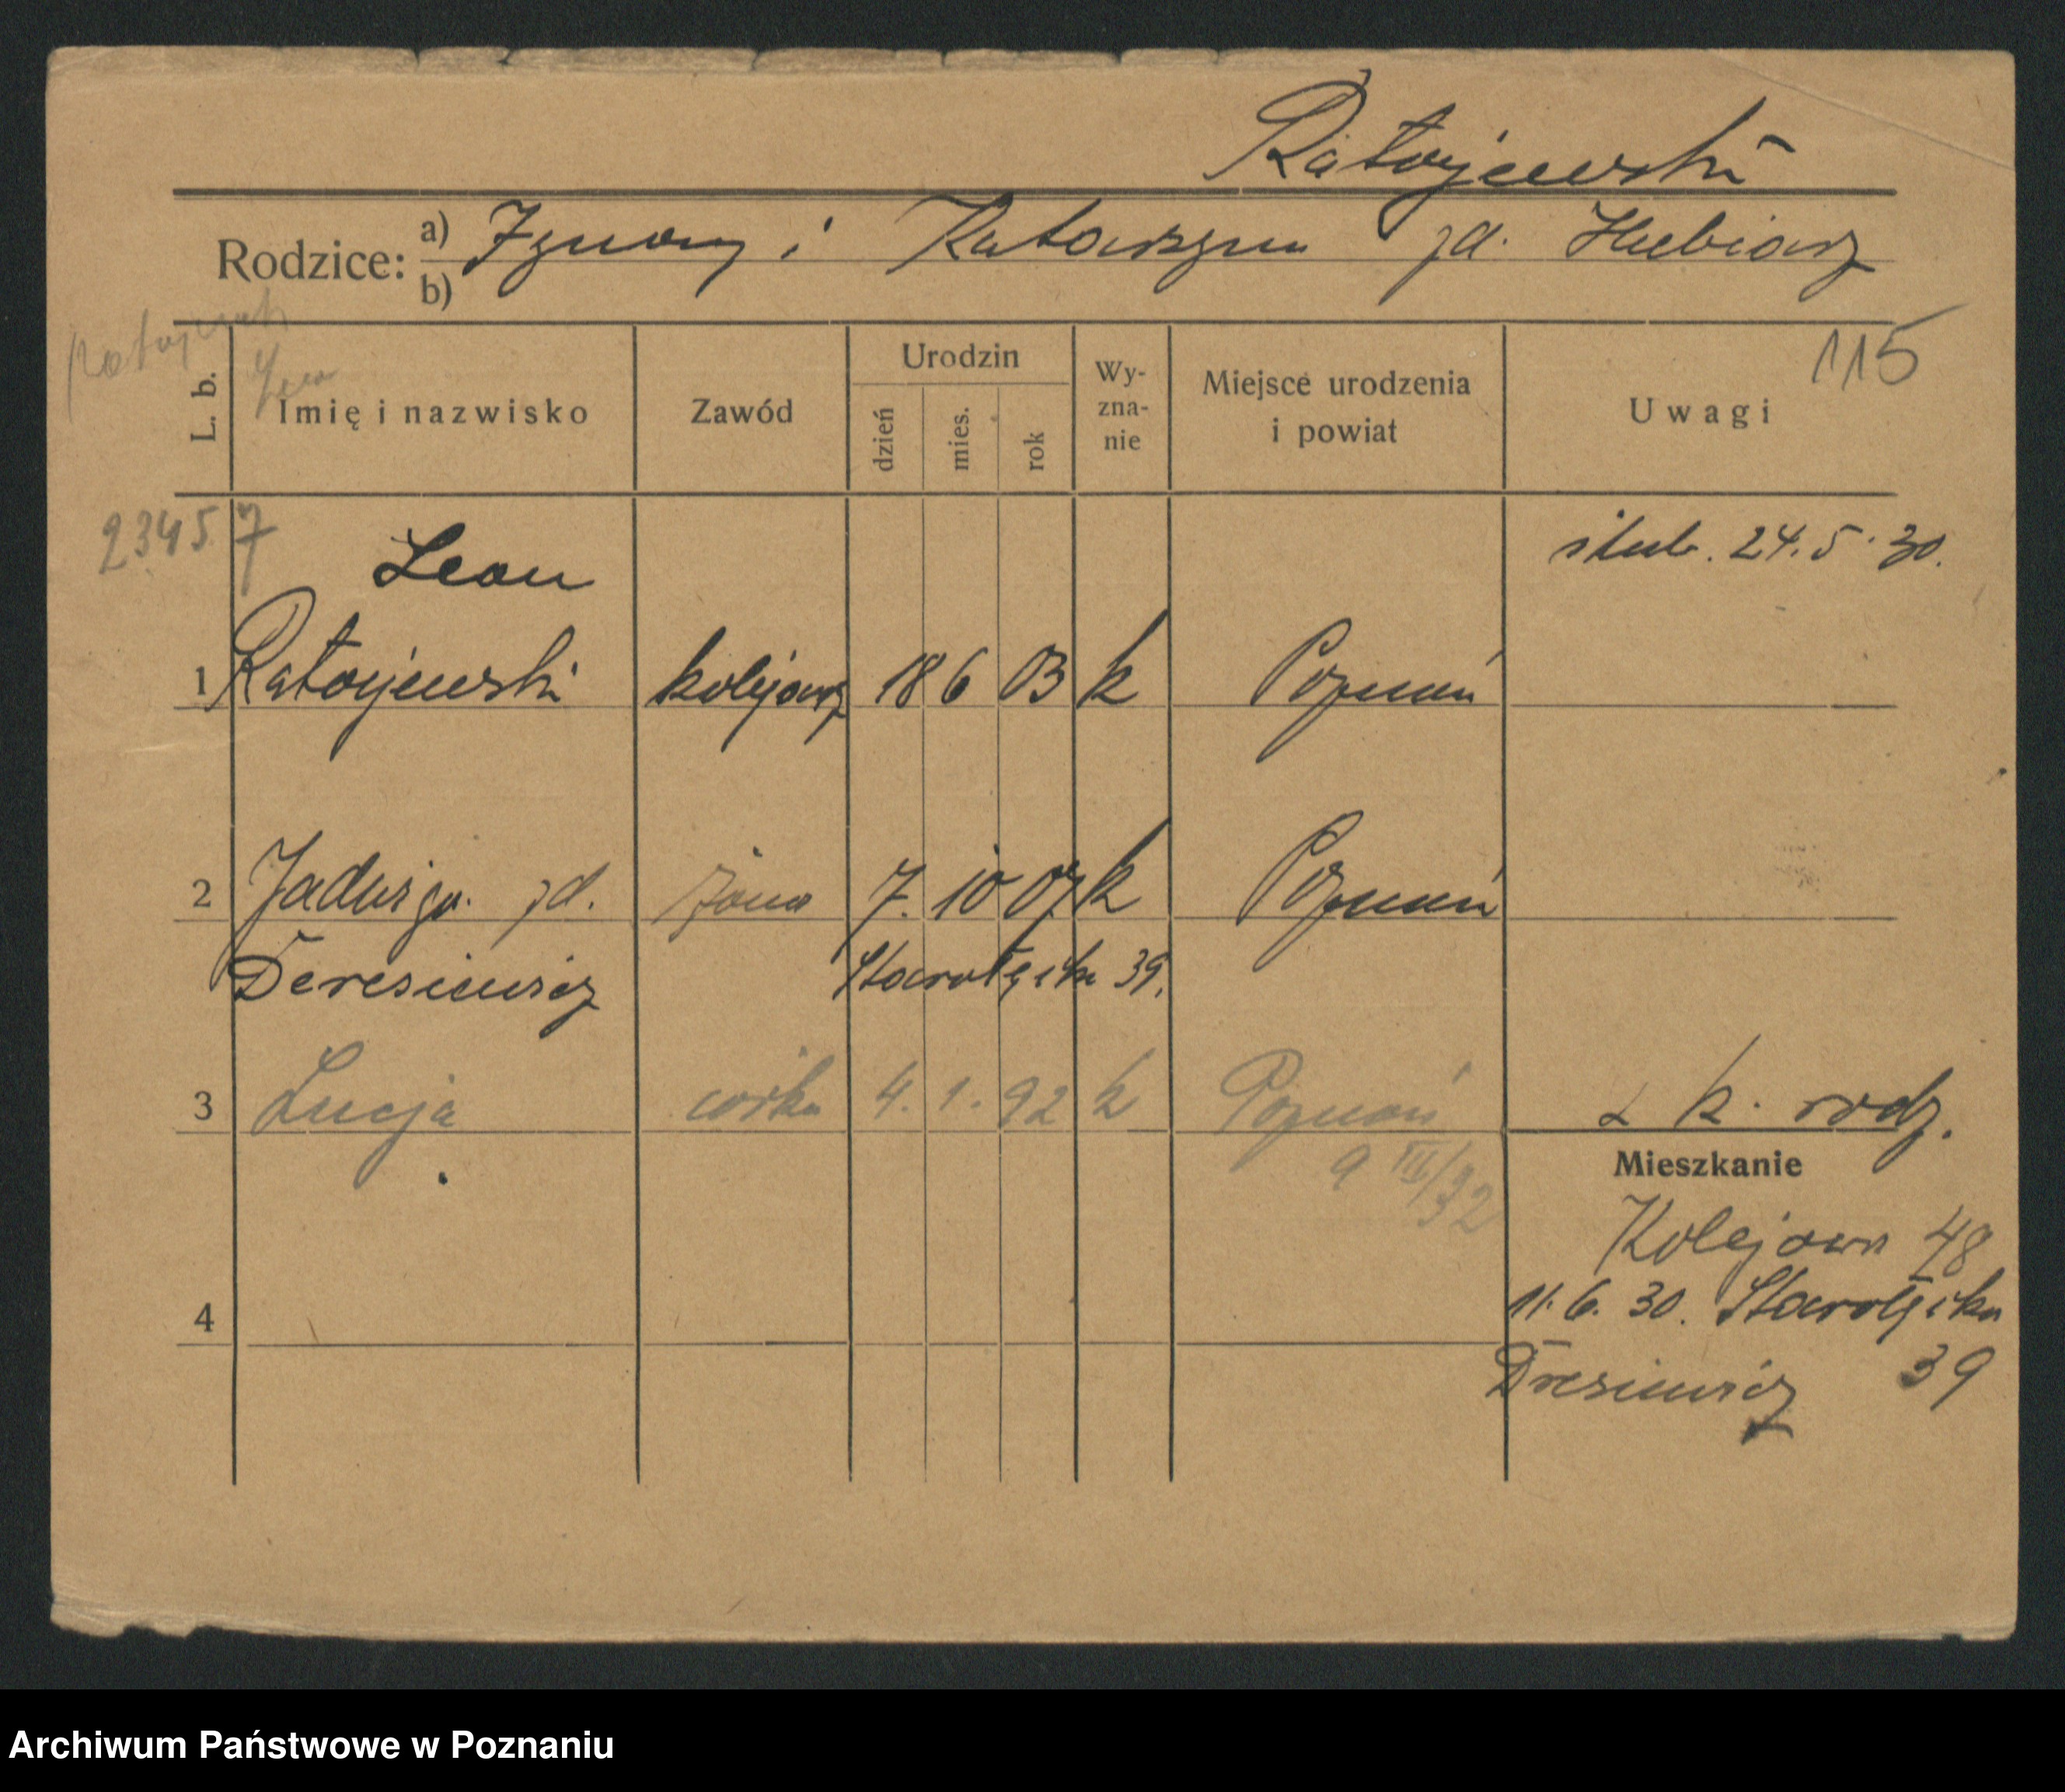 Ratajewski
Rodzice: a) Ignacy i Katarzyna zd. Hubiarz
b)
115
L. b.
Imię i nazwisko
Zawód
Urodzin
dzień
mies.
rok
Wy-
zna-
nie
Miejsce urodzenia
i powiat
Uwagi
23457
Leon
ślub. 24.5.30.
1 Ratajewski kolejarz 18 6 03 k Poznań
2 Jadwiga zd. żona 7. 10 07 k Poznań
Deresiewicz Starołęcka 39.
3 Łucja córka 4. 1. 92 k Poznań z k. rodz.
9 III/32
Mieszkanie
Kolejowa 48
4
11. 6. 30. Starołęcka
Dresiewicz 39
Archiwum Państwowe w Poznaniu